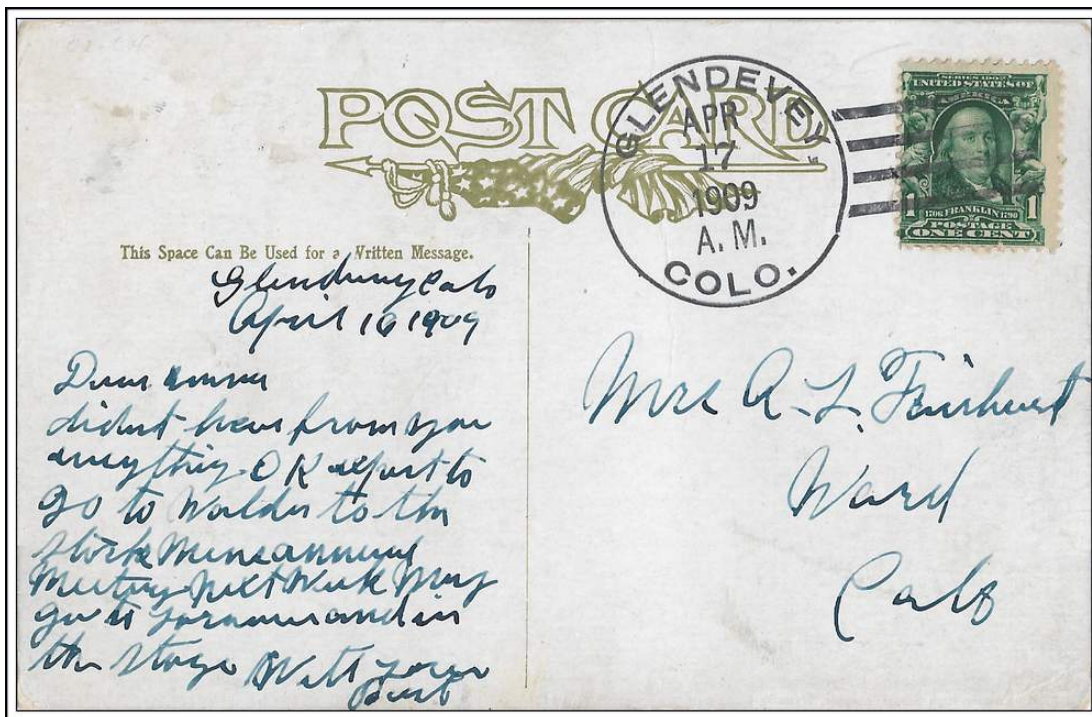 POST CARD
GLENDEVEY
APR
17
1909
A. M.
COLO.
SERIES 1902
UNITED STATES OF
AMERICA
1 1706 FRANKLIN 1790 1
POSTAGE
ONE CENT
This Space Can Be Used for a Written Message.
Glendevey Colo
April 16 1909
Dear
didnt hear from you
everything OK expect to
go to Walden to the
Stock Mens annual
Meeting next Week May
go to around in
the stage Will
Mrs A. L. Fairhurst
Ward
Colo